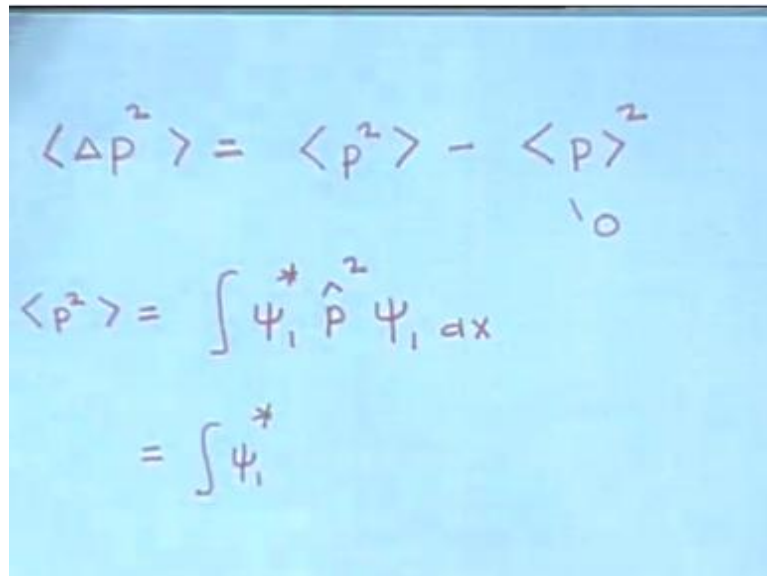 ⟨Δp²⟩ = ⟨p²⟩ − ⟨p⟩²
\0
⟨p²⟩ = ∫ ψ₁* p̂² ψ₁ dx
= ∫ ψ₁*